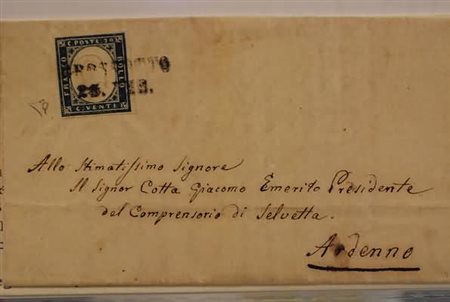 C. POSTE 20
FRANCO
BOLLO
C. VENTI
23. FEB.
Allo Stimatissimo Signore
Il Signor Cotta Giacomo Emerito Presidente
del Comprensorio di Selvetta.
Ardenno